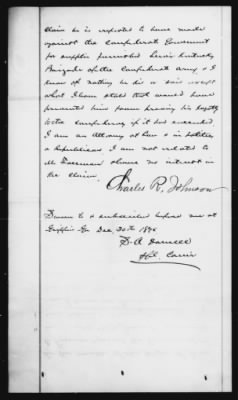 claim he is reputed to have made
against the Confederate Government
for supplies furnished Lewis' Kentucky
Brigade of the Confederate Army & I
know of nothing he did or said except
what I have stated that would have
prevented him from proving his loyalty
to the Confederacy if it had succeeded
I am an Attorney at Law & in politics
a Republican I am not related to
Mr Freeman & have no interest in
the claim.
Charles R. Johnson
Sworn to & subscribed before me at
Griffin Ga Dec, 20th